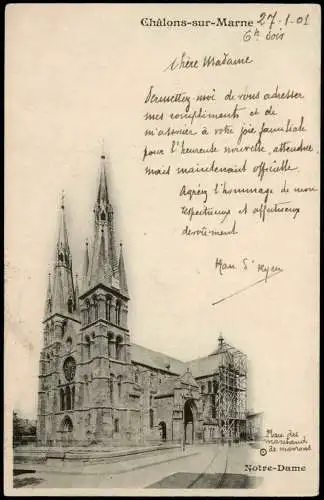 Châlons-sur-Marne 27-1-01
6h soir
Chère Madame
Permettez-moi de vous adresser
mes compliments et de
m'associer à votre joie familiale
pour l'heureuse nouvelle, attendue
mais maintenant officielle.
Agréez l'hommage de mon
respectueux et affectueux
dévouement
Place des
marchands
de marrons
Notre-Dame